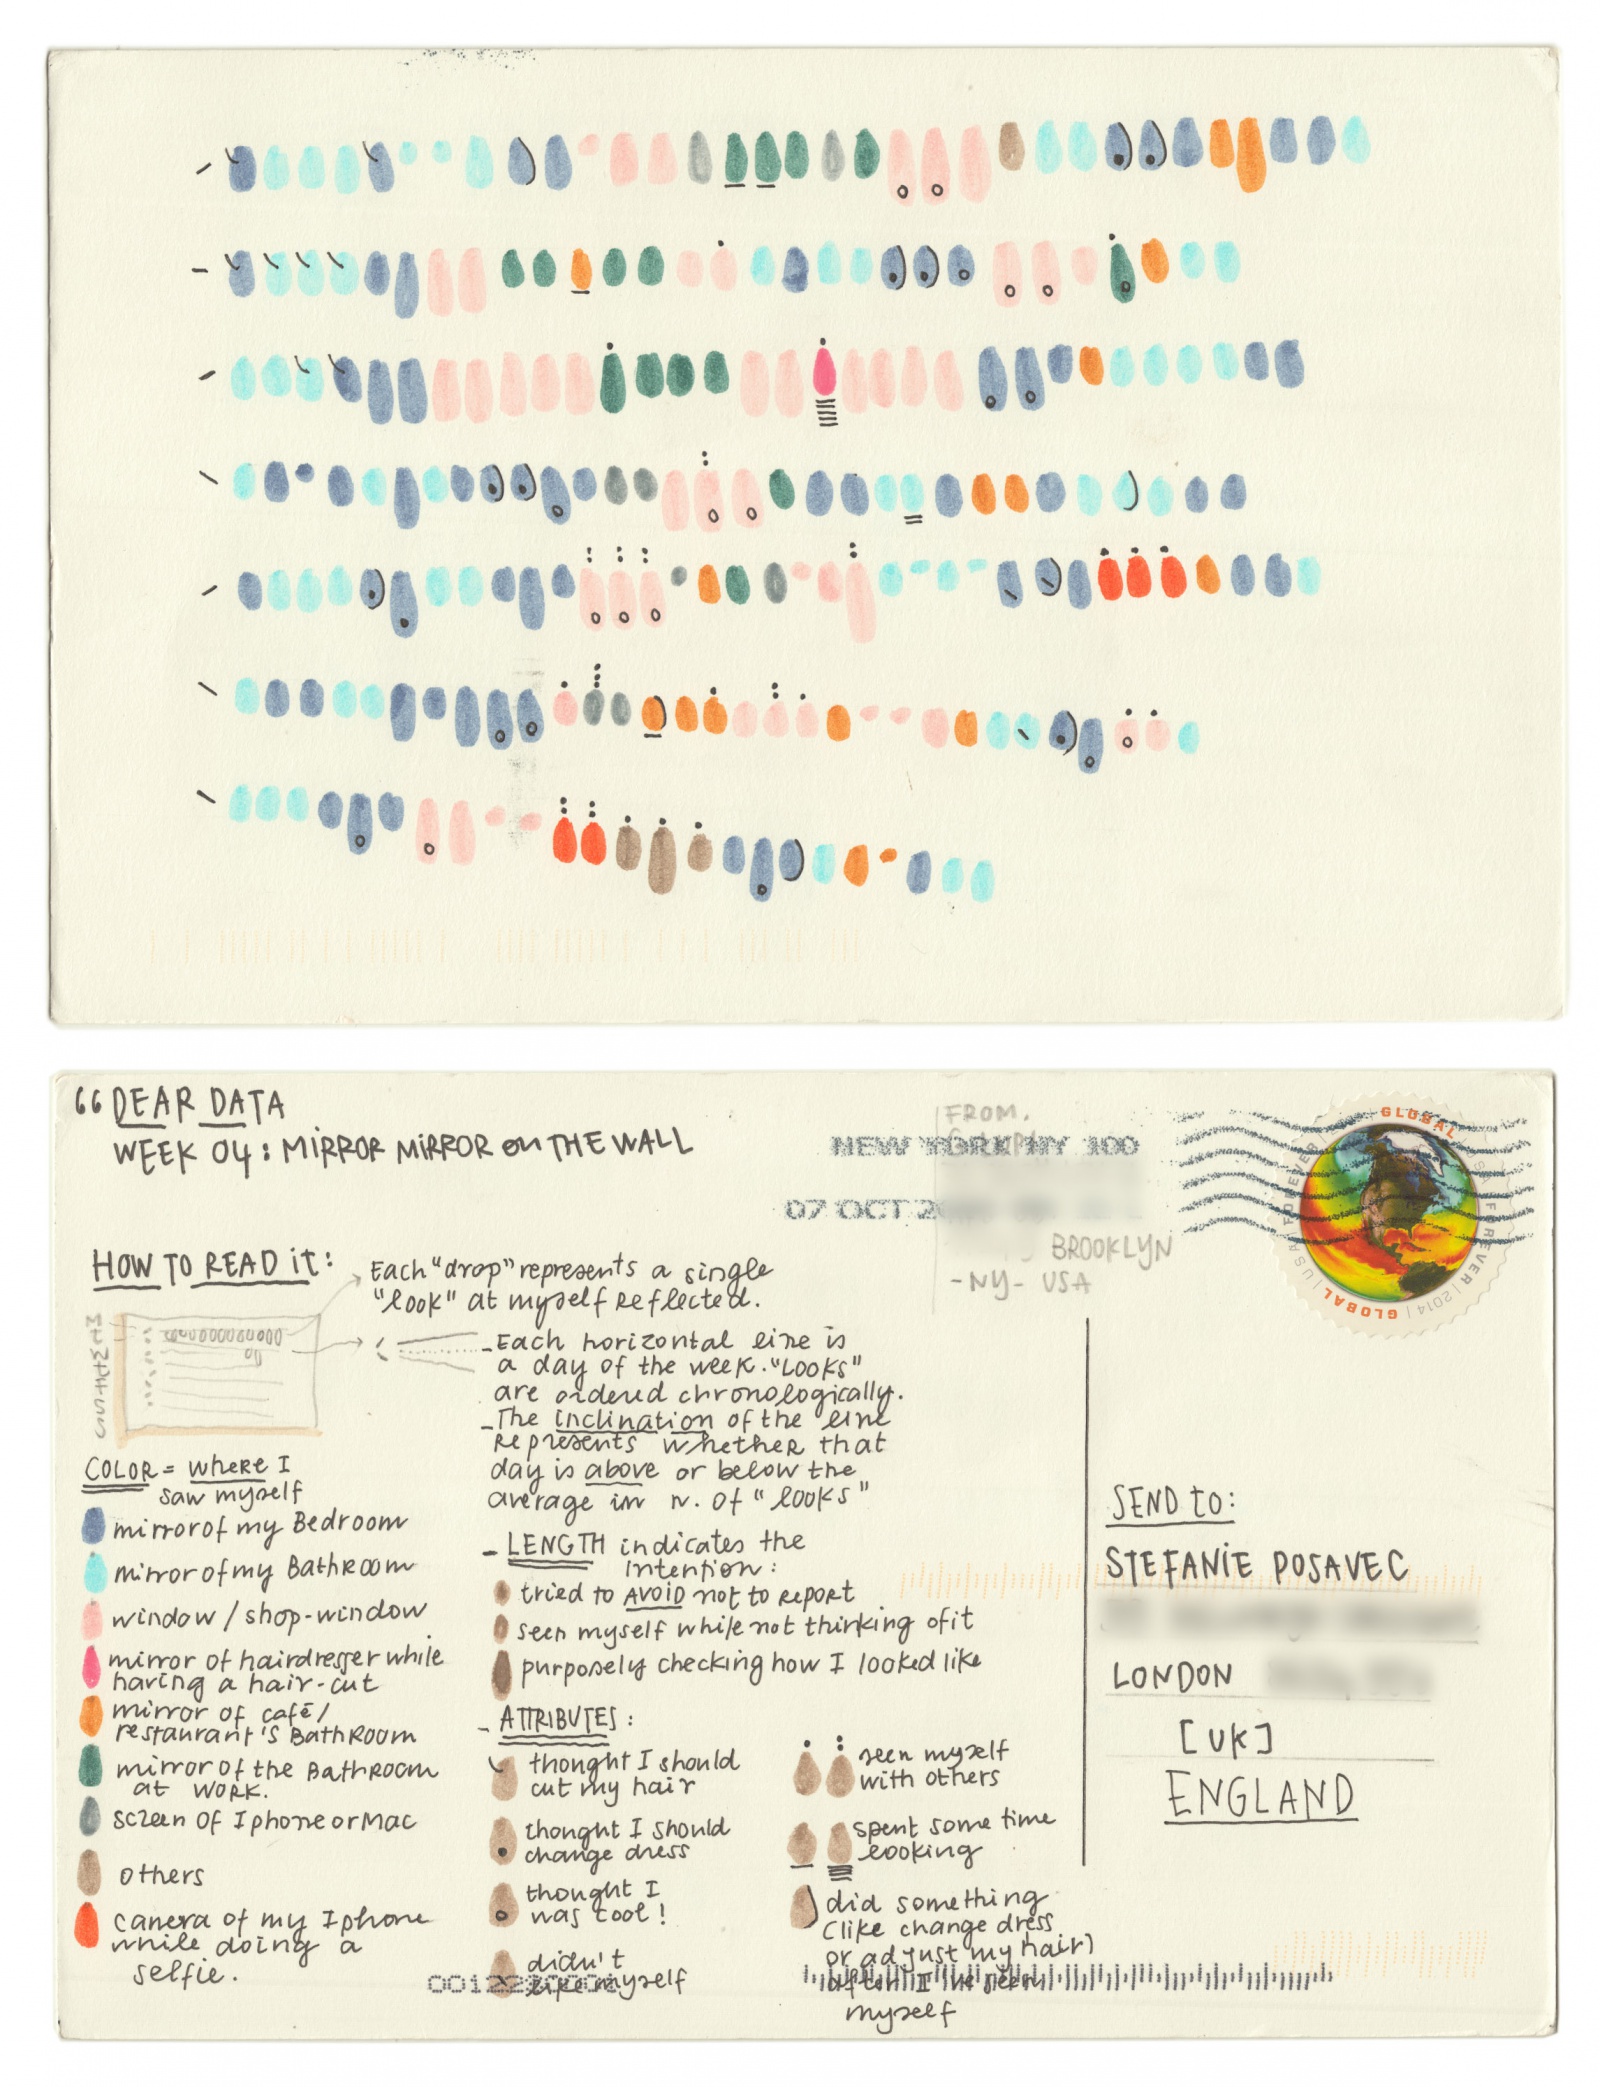 “DEAR DATA
WEEK 04: MIRROR MIRROR ON THE WALL
FROM.
NEW YORK NY 100
07 OCT 2
BROOKLYN
-NY- USA
GLOBAL
USA FOREVER
GLOBAL | 2014
HOW TO READ iT:
Each "drop" represents a single
"look" at myself reflected.
SSMTWTF
- Each horizontal line is
a day of the week. "Looks"
are ordered chronologically.
- The inclination of the line
represents whether that
day is above or below the
average in n. of "looks"
COLOR = where I
saw myself
mirror of my Bedroom
mirror of my Bathroom
window / shop-window
mirror of hairdresser while
having a hair-cut
mirror of café/
restaurant's Bathroom
mirror of the Bathroom
at work.
screen of Iphone or Mac
others
camera of my Iphone
while doing a
selfie.
- LENGTH indicates the
intention:
tried to AVOID not to report
seen myself while not thinking of it
purposely checking how I looked like
- ATTRIBUTES:
thought I should
cut my hair
thought I should
change dress
thought I
was cool!
didn't
like myself
seen myself
with others
spent some time
looking
did something
(like change dress
or adjust my hair)
after I've seen
myself
SEND to:
STEFANIE POSAVEC
LONDON
[UK]
ENGLAND